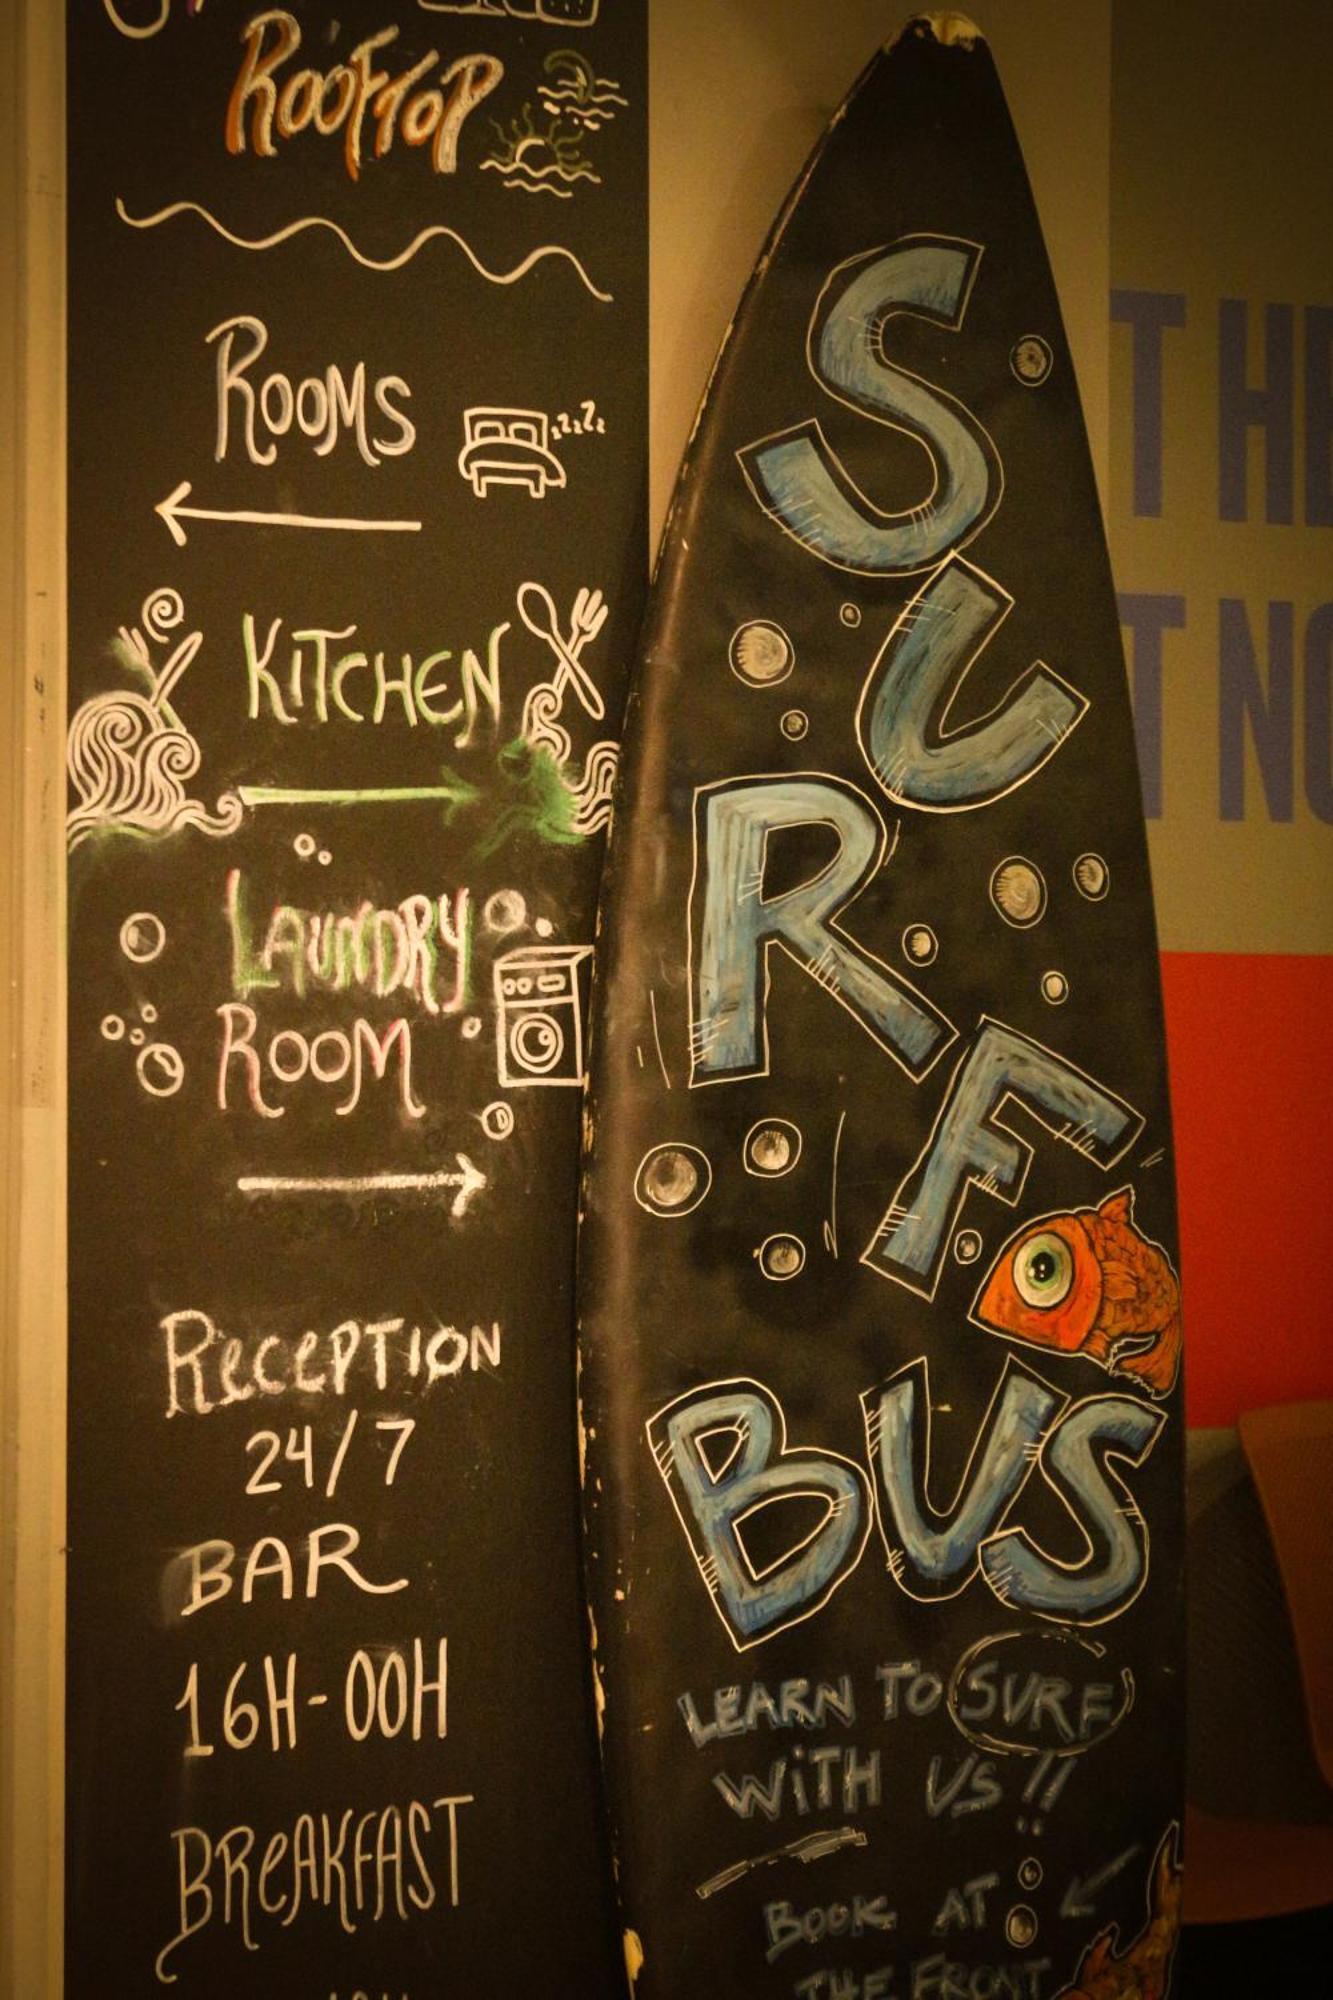 ROOFTOP
ROOMS
zzZzZ
KITCHEN
LAUNDRY
ROOM
RECEPTION
24/7
BAR
16H-00H
BREAKFAST
SURF
BUS
LEARN TO SURF
WiTH US!!
BOOK AT
THE FRONT
T NO